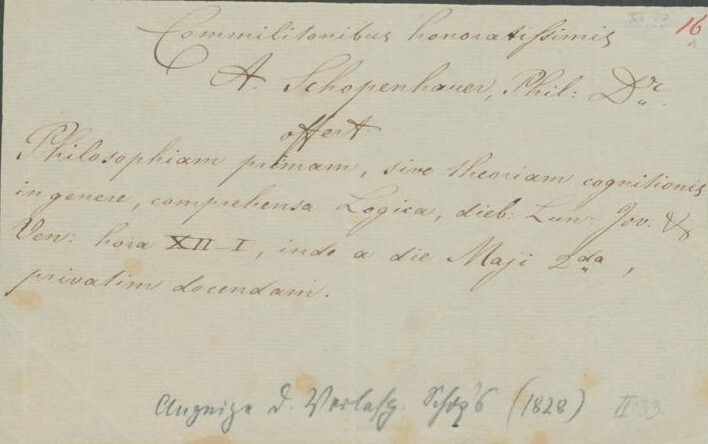 16
Commilitonibus honoratissimis
A. Schopenhauer, Phil: Dr.
offert:
Philosophiam primam, sive theoriam cognitionis
in genere, comprehensa Logica, dieb: Lun: Jov: &
Ven: hora XII–I, inde a die Maji 2da,
privatim docendam.
Anzeige d. Vorlesg. Sch's (1828) II 33